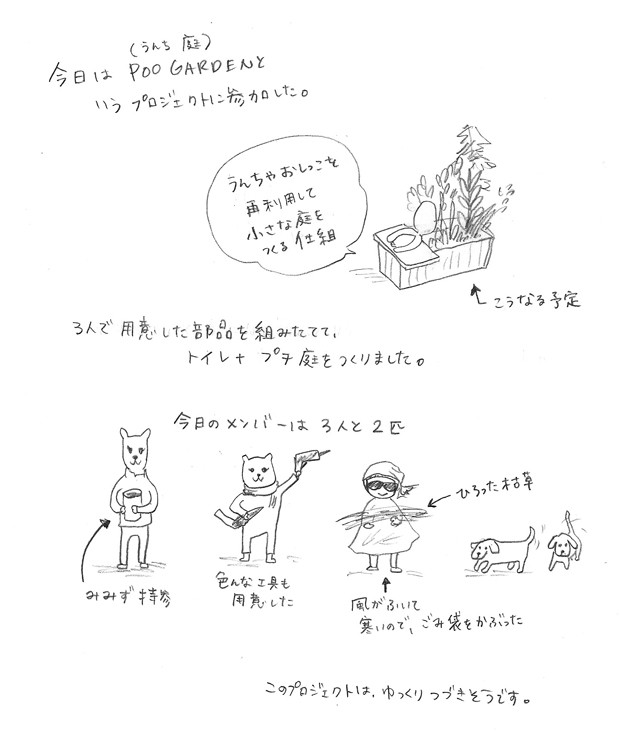 (うんち 庭)
今日は POO GARDENと
いう プロジェクトに参加した。
うんちやおしっこを
再利用して
小さな庭を
つくる仕組
こうなる予定
3人で用意した部品を組みたてて、
トイレ+ プチ庭をつくりました。
今日のメンバーは 3人と2匹
みみず持参
色んな工具も
用意した
ひろった枯草
風がふいて
寒いので、ごみ袋をかぶった
このプロジェクトは、ゆっくりつづきそうです。